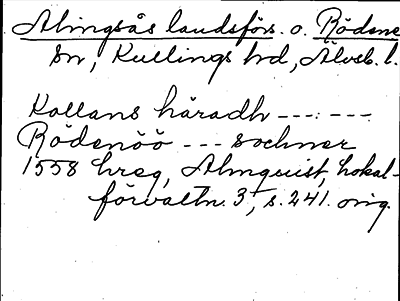 Alingsås landsförs. o. Rödene
sn, Kullings hd, Älvsb. l.
Kollans häradh ---.---
Rödenöö --- sochner
1558 hreg, Almquist, Lokal-
förvaltn. 3, s. 241. orig.